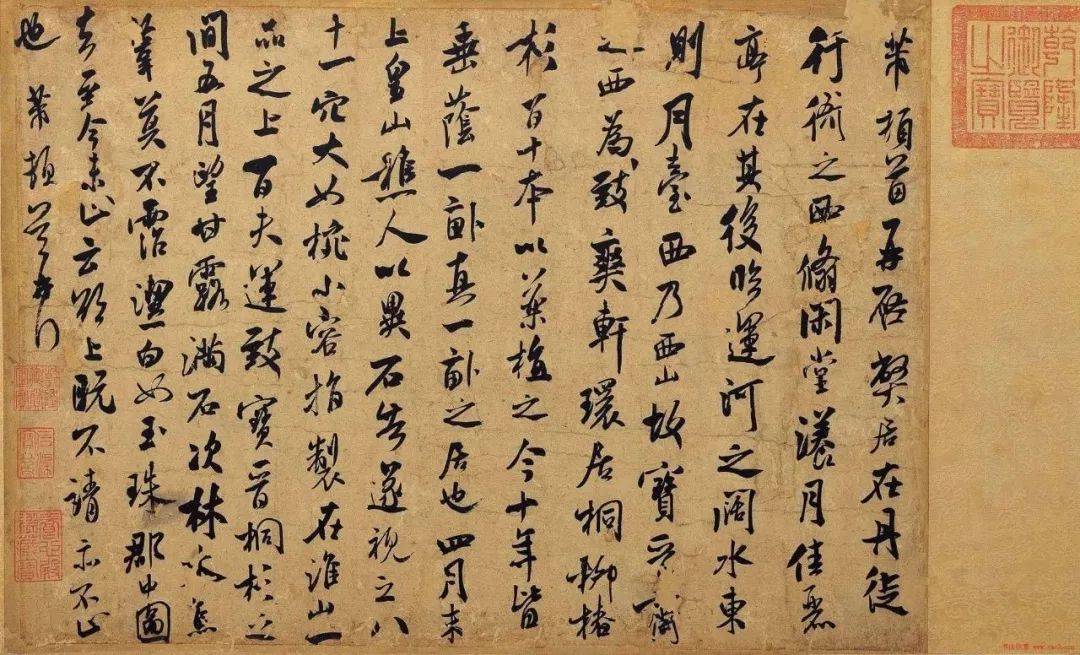 乾隆
御覽
之寶
芾頓首再啓弊居在丹徒
行衙之西翛閑堂漾月佳麗
亭在其後臨運河之闊水東
則月臺西乃西山故寶晉齋
之西為致爽軒環居桐柳椿
杉百十本以藥植之今十年皆
垂蔭一畝真一畝之居也四月末
上皇山樵人以異石告遂視之八
十一穴大如椀小容指製在淮山一
品之上百夫運致寶晉桐杉之
間五月望甘露滿石次林木焦
葦莫不霑潔白如玉珠郡中圖
去至今未止云欲上既不請亦不止
也芾頓首再拜